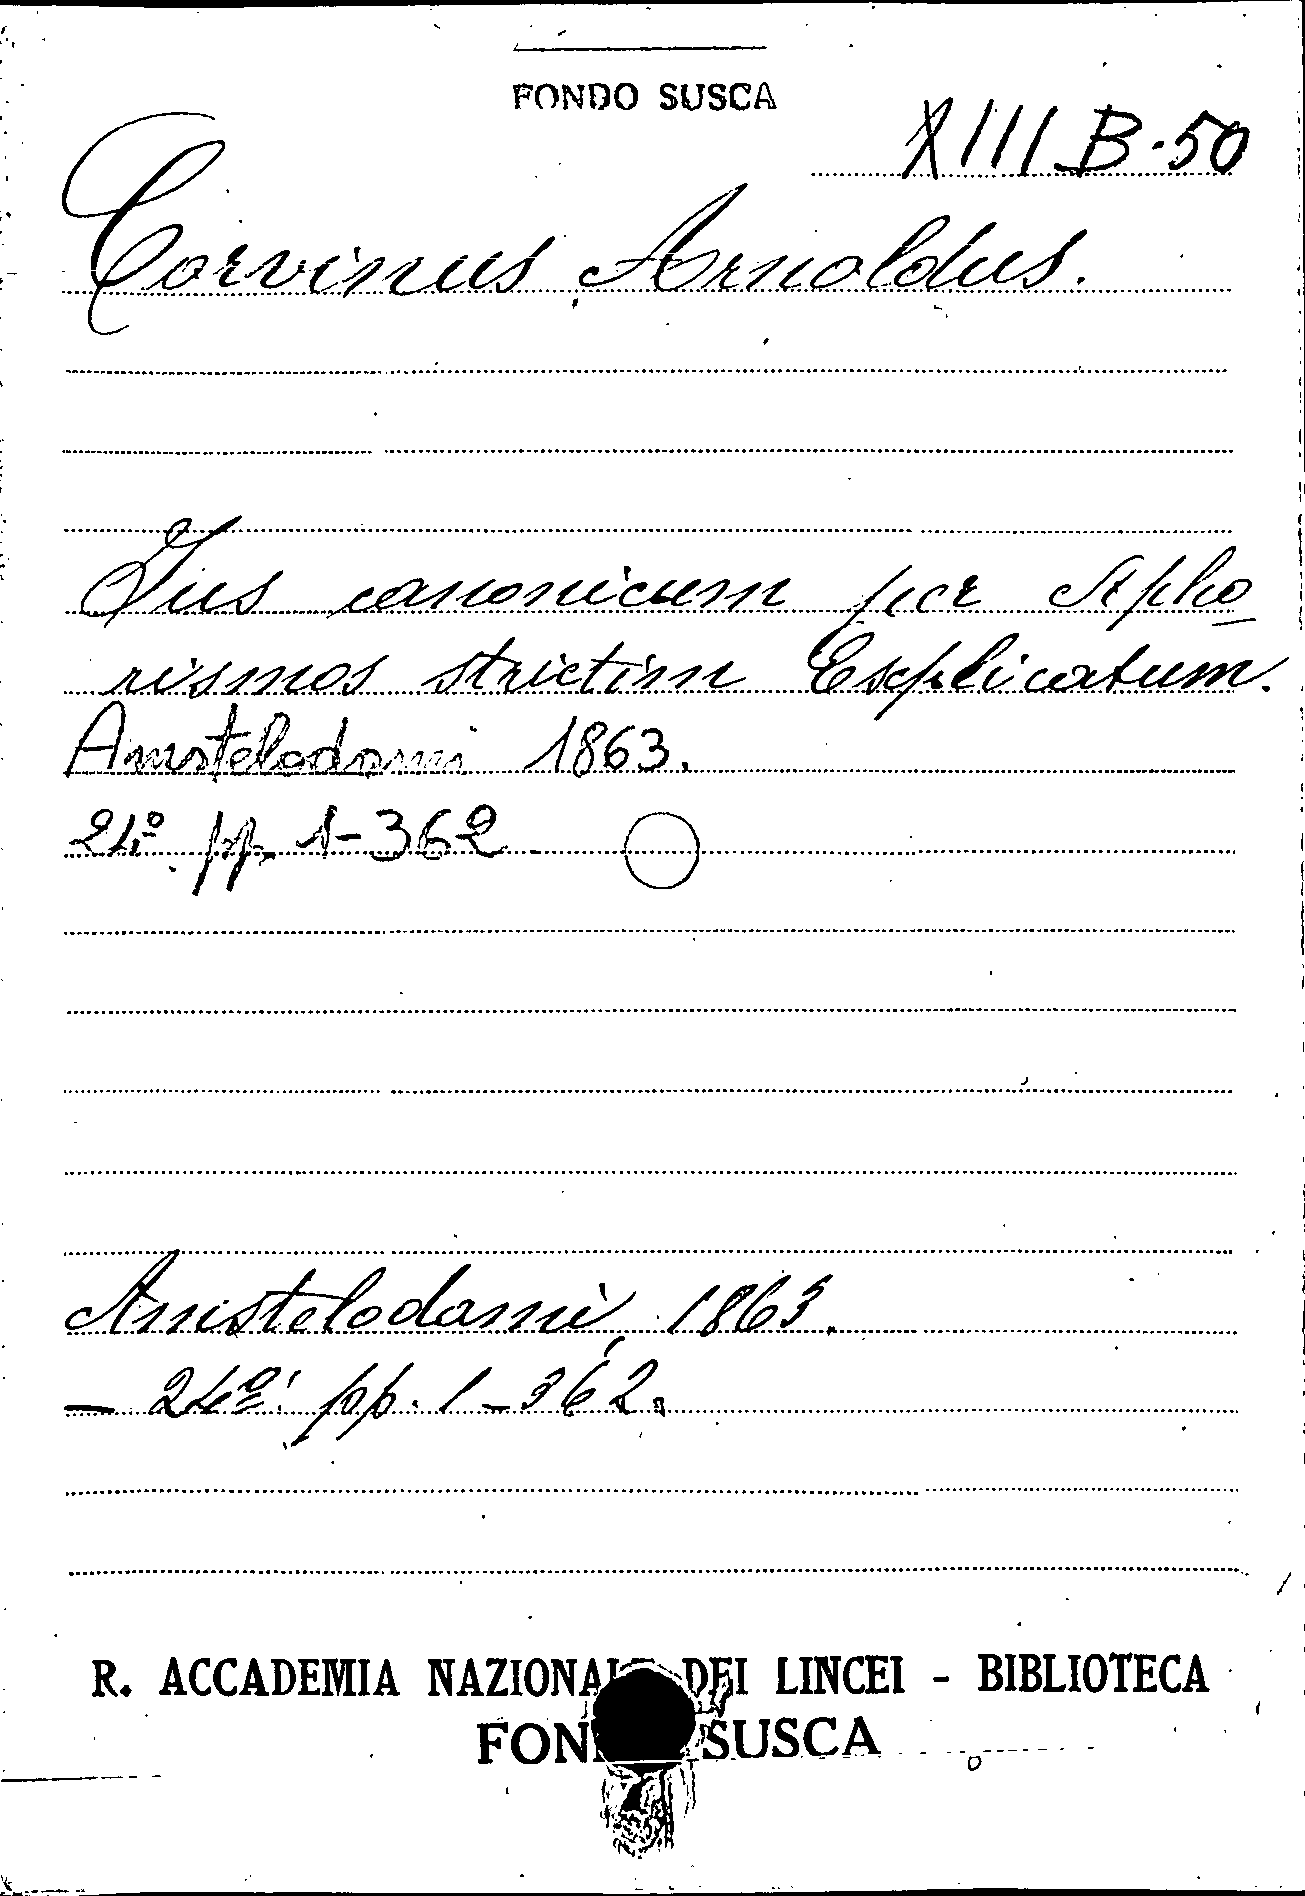 FONDO SUSCA
XIII B·50
Corvinus, Arnoldus.
Jus canonicum per Apho
rismos strictim Explicatum.
Amstelodami 1863.
24º. pp. 1-362
Amstelodami, 1863.
- 24º: pp. 1-362.
R. ACCADEMIA NAZIONALE DEI LINCEI - BIBLIOTECA
FONDO SUSCA